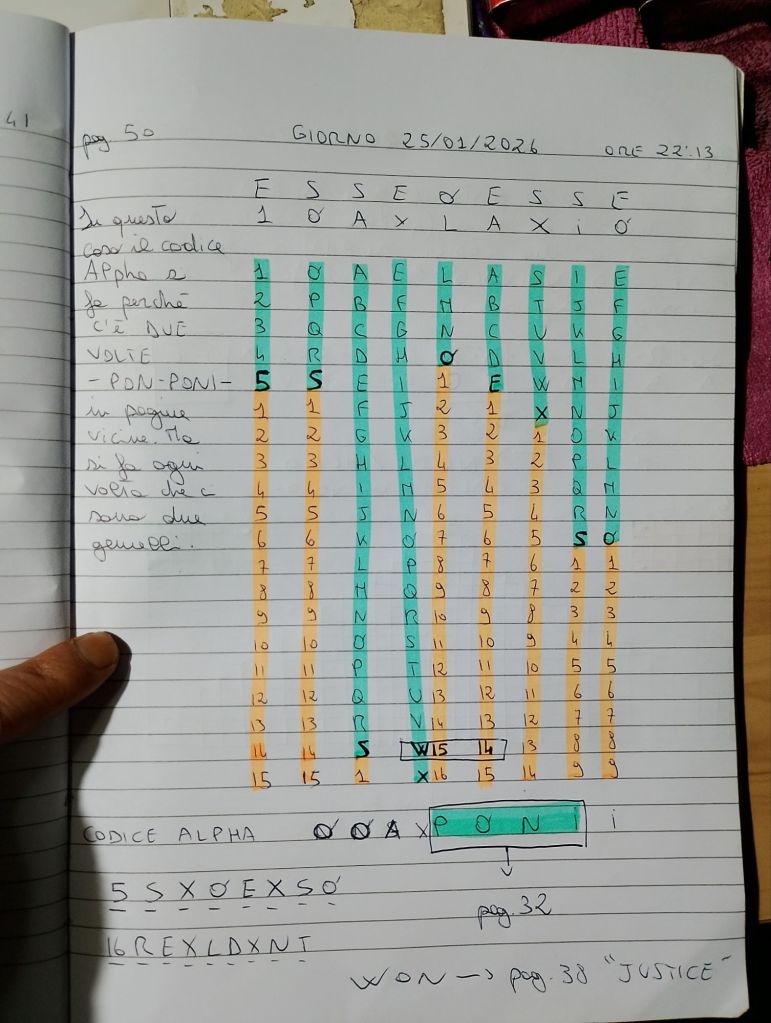 41
pag. 50 GIORNO 25/01/2026 ORE 22:13
E S S E Ø E S S E
In questo 1 Ø A X L A X i Ø
caso il codice
Alpha si 1 Ø A E L A S I E
fa perché 2 P B F M B T J F
c'è DUE 3 Q C G N C U K G
VOLTE 4 R D H Ø D V L H
-PON-PONI- 5 S E I 1 E W M I
in pagine 1 1 F J 2 1 X N J
vicine. Ma 2 2 G K 3 2 1 O K
si fa ogni 3 3 H L 4 3 2 P L
volta che c 4 4 I M 5 4 3 Q M
sono due 5 5 J N 6 5 4 R N
gemelli. 6 6 K O 7 6 5 S Ø
7 7 L P 8 7 6 1 1
8 8 M Q 9 8 7 2 2
9 9 N R 10 9 8 3 3
10 10 O S 11 10 9 4 4
11 11 P T 12 11 10 5 5
12 12 Q U 13 12 11 6 6
13 13 R V 14 13 12 7 7
14 14 S W 15 14 13 8 8
15 15 1 X 16 15 14 9 9
CODICE ALPHA Ø Ø A X P O N I i
5 S X Ø E X S Ø
pag. 32
16 R E X L D X N I
WON → pag. 38 "JUSTICE"